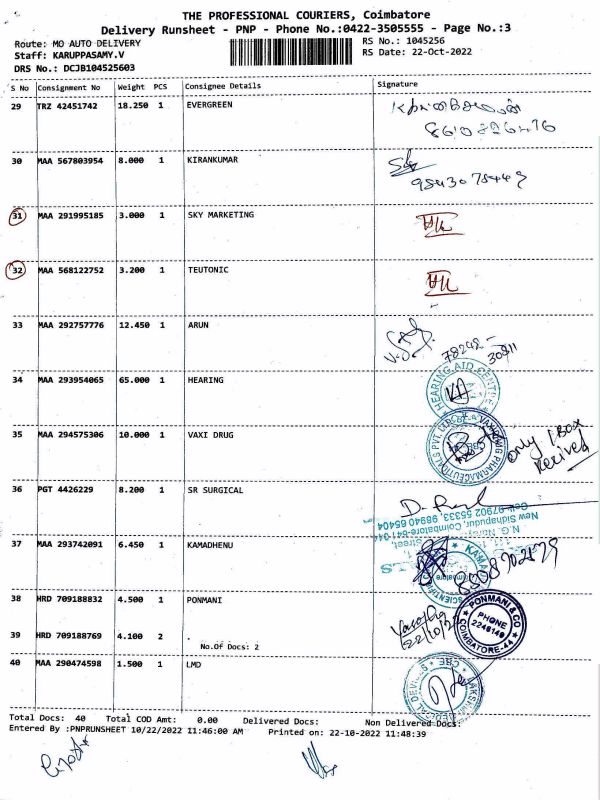 THE PROFESSIONAL COURIERS, Coimbatore
Delivery Runsheet - PNP - Phone No.:0422-3505555 - Page No.:3
Route: MO AUTO DELIVERY RS No.: 1045256
Staff: KARUPPASAMY.V RS Date: 22-Oct-2022
DRS No.: DCJB104525603
S No Consignment No Weight PCS Consignee Details Signature
29 TRZ 42451742 18.250 1 EVERGREEN
30 MAA 567803954 8.000 1 KIRANKUMAR
31 MAA 291995185 3.000 1 SKY MARKETING
32 MAA 568122752 3.200 1 TEUTONIC
33 MAA 292757776 12.450 1 ARUN
78242-
30811
34 MAA 293954065 65.000 1 HEARING
HEARING AID CENTRE
35 MAA 294575306 10.000 1 VAXI DRUG
only 1 Box
Recived
36 PGT 4426229 8.200 1 SR SURGICAL
New Sidhapur, Coimbatore-641 044
Cell: 97902 55333, 98940 65404
37 MAA 293742091 6.450 1 KAMADHENU
38 HRD 709188832 4.500 1 PONMANI
22/10/22
PONMANI & CO
PHONE
2246149
COIMBATORE-44
39 HRD 709188769 4.100 2
No.Of Docs: 2
40 MAA 290474598 1.500 1 LMD
Total Docs: 40 Total COD Amt: 0.00 Delivered Docs: Non Delivered Docs:
Entered By :PNPRUNSHEET 10/22/2022 11:46:00 AM Printed on: 22-10-2022 11:48:39